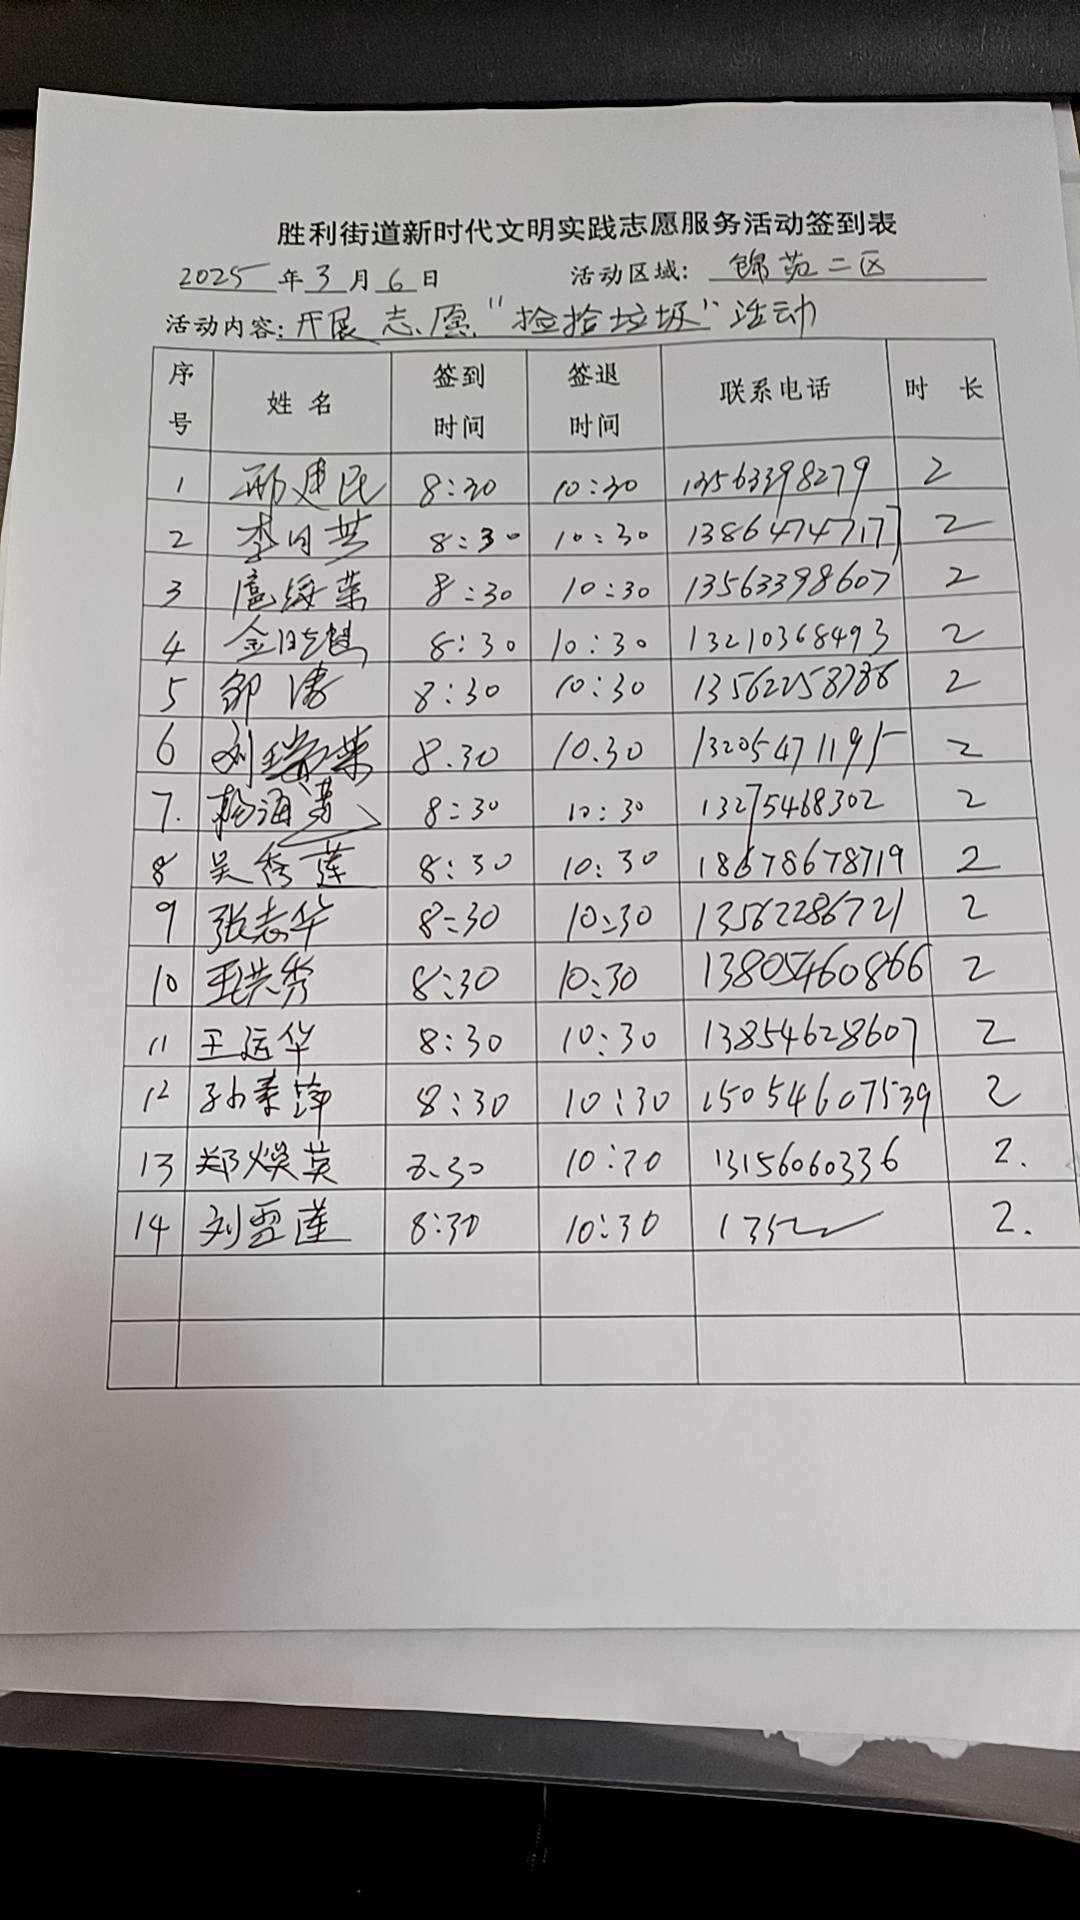 胜利街道新时代文明实践志愿服务活动签到表
2025年3月6日 活动区域: 锦苑二区
活动内容: 开展志愿"捡拾垃圾"活动
序号 姓名 签到时间 签退时间 联系电话 时 长
1 邢建民 8:30 10:30 13563398279 2
2 李日芸 8:30 10:30 13864747177 2
3 扈绥荣 8:30 10:30 13563398607 2
4 金 8:30 10:30 13210368493 2
5 邹涛 8:30 10:30 13562258786 2
6 刘瑞荣 8.30 10.30 13205471195 2
7. 杨海 8:30 10:30 13275468302 2
8 吴秀莲 8:30 10:30 18678678719 2
9 张志华 8:30 10:30 13562286721 2
10 王洪秀 8:30 10:30 13805460866 2
11 王运华 8:30 10:30 13854628607 2
12 孙素萍 8:30 10:30 15054607539 2
13 郑焕英 8.30 10:30 13156060336 2.
14 刘雪莲 8:30 10:30 1352 2.